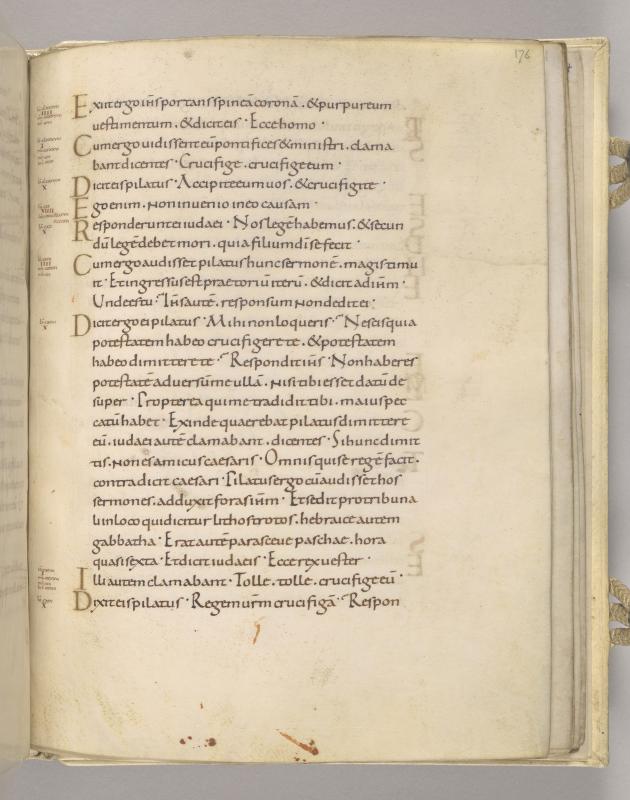 176
Exiit ergo ihs portans spineā coronā. & purpureum
uestimentum. & dicit eis · Ecce homo ·
Cum ergo uidissent eū pontifices & ministri. clama
bant dicentes · Crucifige. crucifige eum ·
Dicit eis pilatus · Accipite eum uos. & crucifigite ·
Ego enim. Non inuenio in eo causam ·
Responderunt ei iudaei · Nos legē habemus. & secun
dū legē debet mori. quia filium di se fecit ·
Cum ergo audisset pilatus hunc sermonē. magis timu
it · Et ingressus est praetoriū iterū. & dicit ad ihm ·
Unde es tu · Ihs autē. responsum Non dedit ei ·
Dicit ergo ei pilatus · Mihi non loqueris · Nescis quia
potestatem habeo crucifigere te. & potestatem
habeo dimittere te · Respondit ihs · Non haberes
potestatē aduersū me ullā. Nisi tibi esset datū de
super · Propterea qui me tradidit tibi. maius pec
catū habet · Exinde quaerebat pilatus dimittere
eū. iudaei autē clamabant. dicentes · Si hunc dimit
tis. Non es amicus caesaris · Omnis qui se regē facit.
contradicit caesari · Pilatus ergo cū audisset hos
sermones. adduxit foras ihm · Et sedit pro tribuna
li in loco qui dicitur lithostrotos. hebraice autem
gabbatha · Erat autē parasceue paschae. hora
quasi sexta · Et dicit iudaeis · Ecce rex uester ·
Illi autem clamabant · Tolle. tolle. crucifige eū ·
Dixit eis pilatus · Regem urm crucifigā · Respon